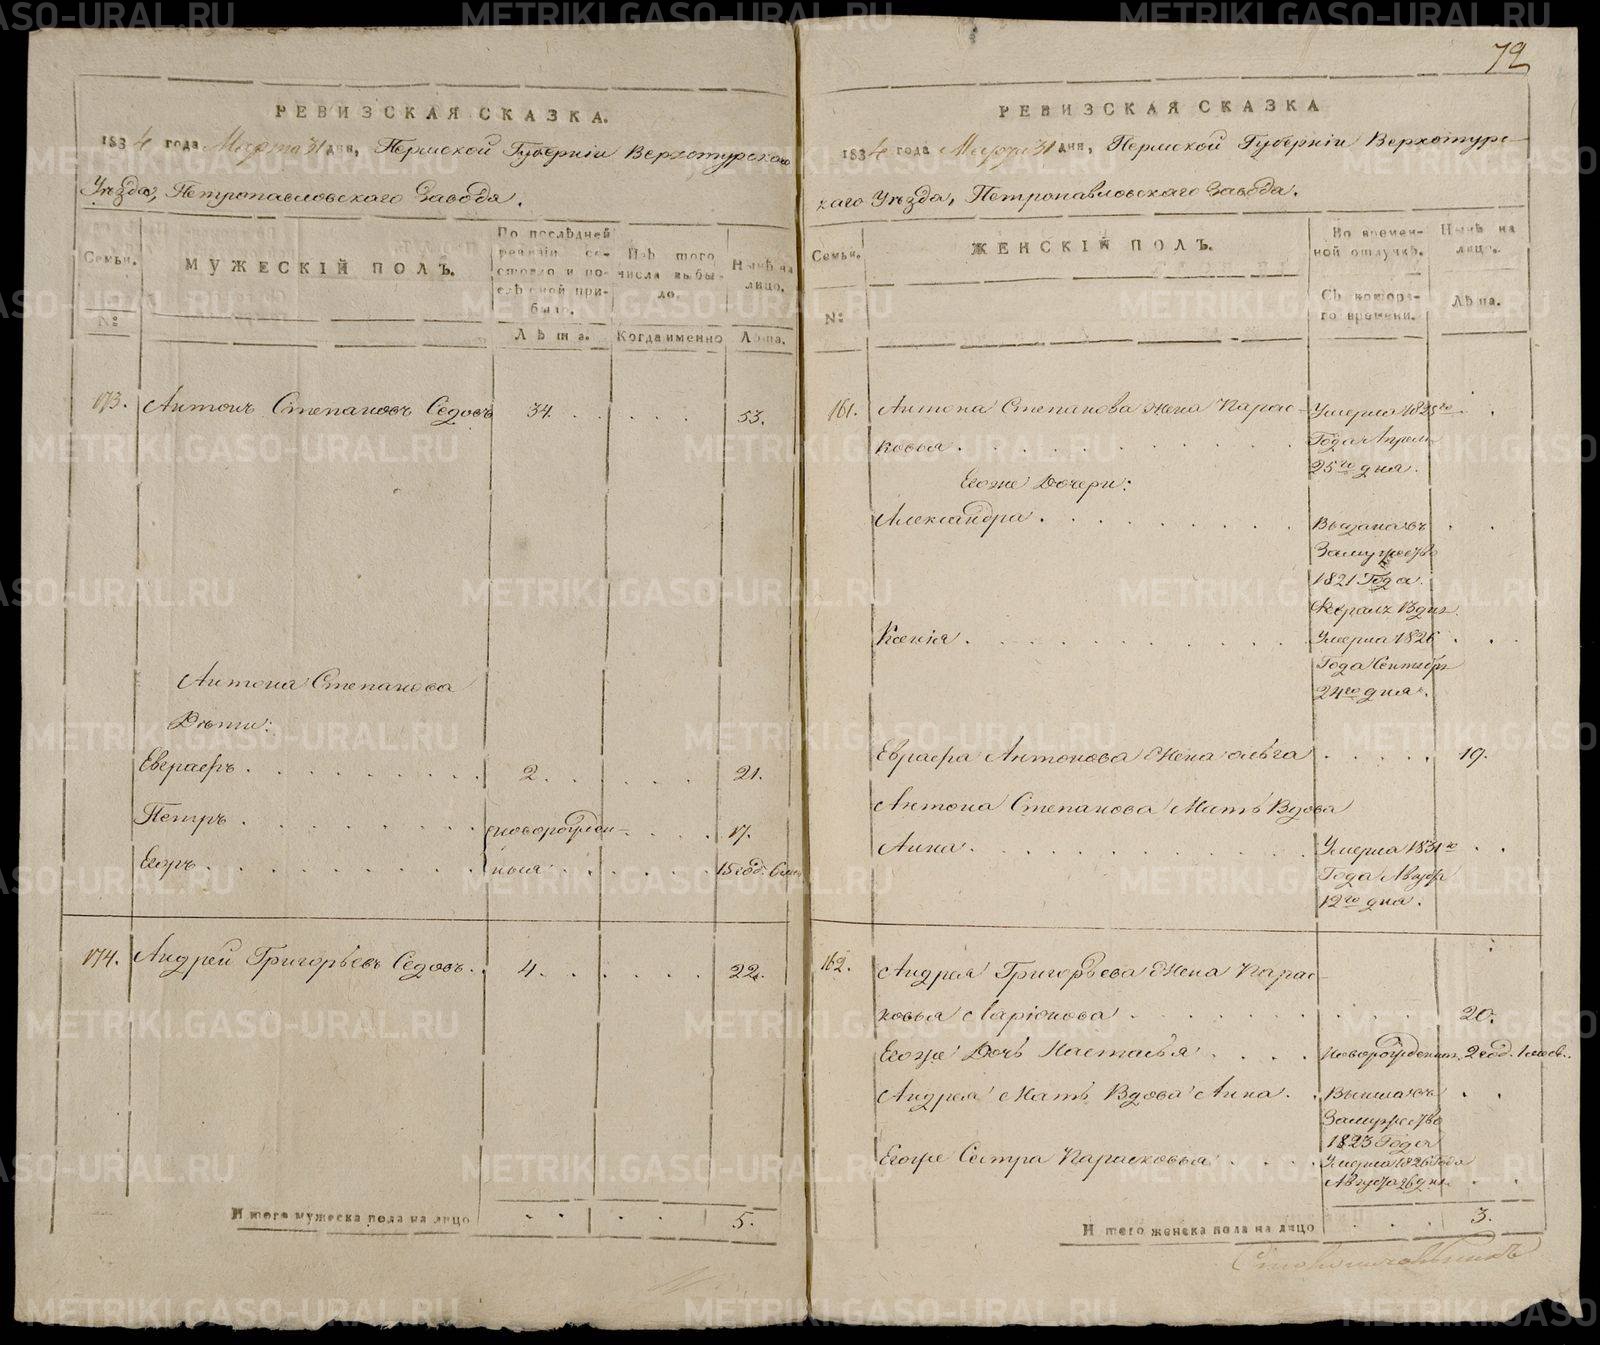 72
РЕВИЗСКАЯ СКАЗКА.
1834 года Марта 31 дня, Пермской Губерніи Верхотурскаго
Уѣзда, Петропавловскаго Завода.
Семьи.
№:
МУЖЕСКІЙ ПОЛЪ.
По послѣдней ревизіи состояло и послѣ оной прибыло.
Лѣта.
Изъ того числа выбыло.
Когда именно
Нынѣ на лицо.
Лѣта.
173. Антонъ Степановъ Седовъ 34. 53.
Антона Степанова
Дѣти:
Евграфъ 2. 21.
Петръ новорожден- 17.
Егоръ ныя 15 год. 6 мѣс
174. Андрей Григорьевъ Седовъ. 4. 22.
Итого мужеска пола на лицо 5.
РЕВИЗСКАЯ СКАЗКА
1834 года Марта 31 дня, Пермской Губерніи Верхотурс-
каго Уѣзда, Петропавловскаго Завода.
Семьи.
№:
ЖЕНСКІЙ ПОЛЪ.
Во времен-
ной отлучкѣ.
Съ котора-
го времени.
Нынѣ на
лицо.
Лѣта.
161. Антона Степанова Жена Парас- Умерла 1825го
ковья Года Апреля
25го дня.
Егоже Дочери:
Александра. Выданавъ
Замужество
1821 Года.
Февраля 13 дня.
Ксенія. Умерла 1826
Года Сентябр
24го дня.
Евграфа Антонова Жена Ольга 19.
Антона Степанова Мать Вдова
Анна. Умерла 1831го
Года Августа
12го дня.
162. Андрея Григорьева Жена Парас-
ковья Ларіонова 20.
Егоже Дочь Настасья новорожденная. 2 год. 1 мѣсяц.
Андрея Мать Вдова Анна. Вышлавъ
Замужество
1823 Года
Егоже Сестра Парасковья Умерла 1826 Года
Августа 26 дня.
Итого женска пола на лицо 3.
METRIKI.GASO-URAL.RU